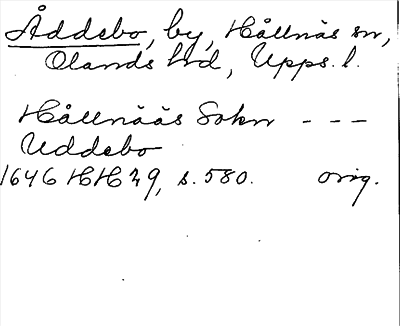 Åddebo, by, Hållnäs sn,
Olands hd, Upps. l.
Hållnääs Sokn - - -
Uddebo
1646 HH 29, s. 580. orig.